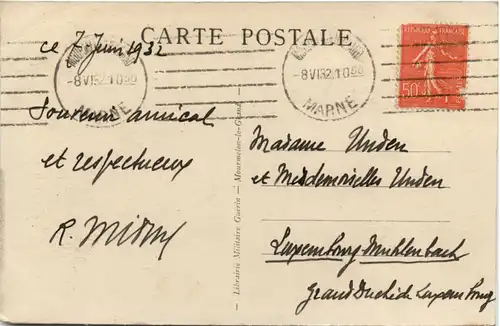 CARTE POSTALE
ce 7 Juin 1932
-8 VI 32 10
MARNE
-8 VI 32 10
MARNE
REPUBLIQUE FRANÇAISE
50
Souvenir amical
et respectueux
R.
Librairie Militaire Guérin — Mourmelon-le-Grand
Madame Unden
et Mesdemoiselles Unden
Luxembourg-Muhlenbach
Grand Duché de Luxembourg